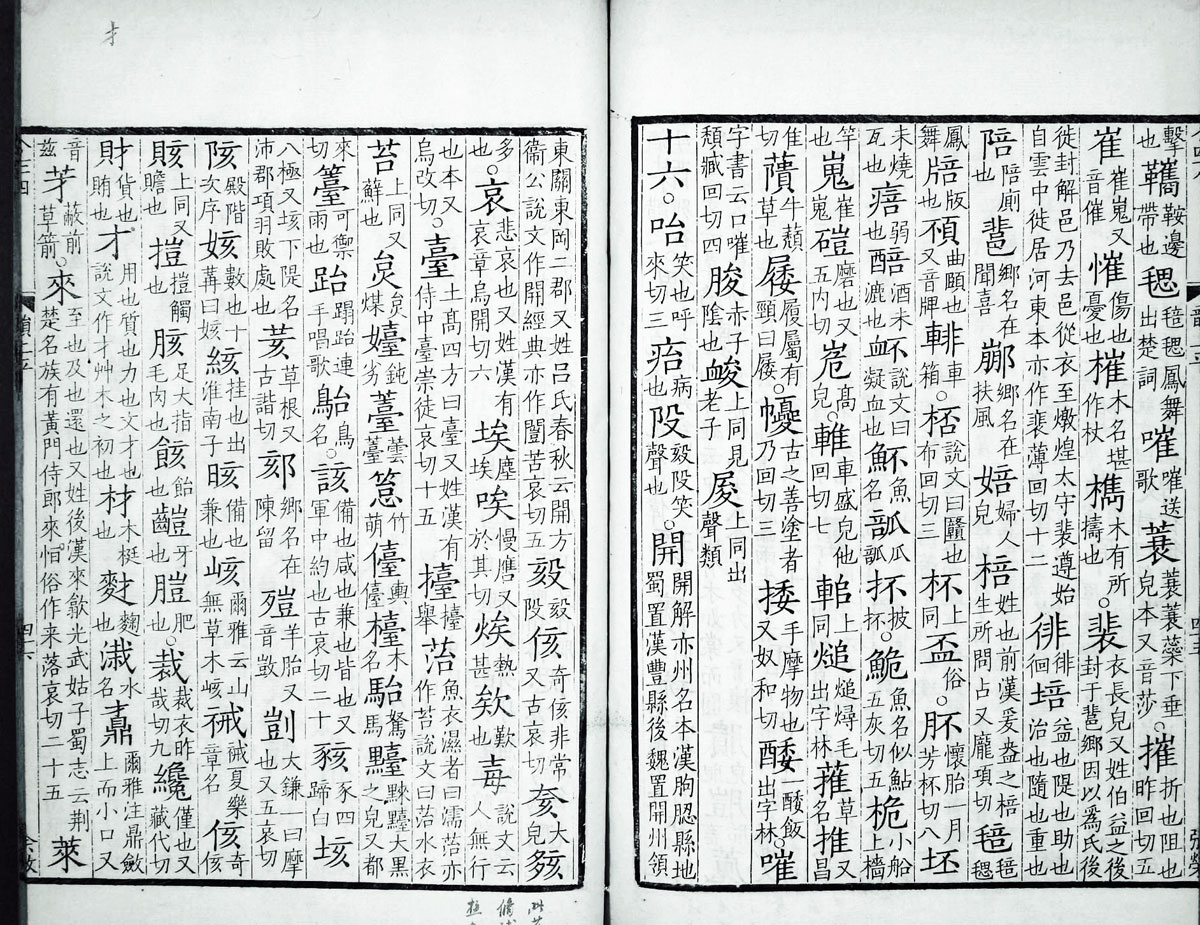 擊也鞍邊帶也毸毰毸鳳舞出楚詞嗺嗺送歌蓑蓑蓑蘂下垂皃本又音莎。摧折也阻也昨回切五
崔崔嵬又音催慛傷也憂也槯木名堪作杖檇木有所擣也。裴衣長皃又姓伯益之後封于𨛬鄉因以爲氏後
徙封解邑乃去邑從衣至燉煌太守裴遵始自雲中徙居河東本亦作裵薄回切十二徘徘徊培益也隄也助也治也隨也重也
陪陪廁也𨛬鄉名在聞喜鄉名在扶風婄婦人皃棓姓也前漢爰盎之棓生所問占又龎項切毰毰毸
鳳舞版也曲頤也又音牌車箱。桮說文曰也布回切三杯上同盃俗。肧懷胎一月芳杯切八坯
未燒瓦也㾦弱也醅酒未漉也衃說文曰凝血也魾魚名瓜抷披抷。鮠魚名似鮎五灰切五桅小船上檣
竿也嵬崔嵬磑磨也又五内切峞高皃。車盛皃他回切七上同㷟㷟燖毛出字林蓷草名推又昌
隹切藬牛蘈草也履屬有頸曰。古之善塗者乃回切三捼手摩物也又奴和切醙飯出字林。嗺
字書云口嗺頹臧回切四朘赤子陰也上同見老子上同出聲類
十六。咍笑也呼來切三病也毅笑聲也。開開解亦州名本漢朐䏰縣地蜀置漢豐縣後魏置開州領
東關東岡二郡又姓吕氏春秋云開方衞公說文作開經典亦作闓苦哀切五毅㱼侅奇侅非常又古哀切奒大皃𡖪
多也。哀悲哀也又姓漢有哀章烏開切六埃塵埃唉慢譍又於其切㶼熱甚欸歎也毐說文云人無行
也本又烏改切。臺土髙四方曰臺又姓漢有侍中臺崇徒哀切十五擡擡舉菭魚衣濕者曰濡菭亦作苔說文曰菭水衣
苔上同又蘚也炱炱煤嬯鈍劣薹蕓薹䈚竹萌儓輿儓橀木名駘駑馬黱䵝大黒之皃又都
來切籉可禦雨也跆蹋跆連手唱歌鳥名。該備也咸也兼也皆也又軍中約也古哀切二十豥豕四蹄白垓
八極又垓下隄名沛郡項羽敗處也荄草根又古諧切郂鄉名在陳留羊胎又音㱯剴大鎌一曰摩也又五哀切
陔殿階次序姟數也十冓曰姟絯挂也出淮南子晐備也兼也峐爾雅云山無草木峐祴祴夏樂章名侅奇侅
賅上同又贍也㨟㨟觸也胲足大指毛肉也餩飴也牙也肥也。裁裁衣昨哉切九纔僅也又藏代切
財貨也賄也才用也質也力也文才也說文作才艸木之初也材木梃也麴也水名鼒爾雅注鼎斂上而小口又
音兹芽蔽前草箭。來至也及也還也又姓後漢來歙光武姑子蜀志云荆楚名族有黄門侍郎來㤙俗作来落哀切二十五萊